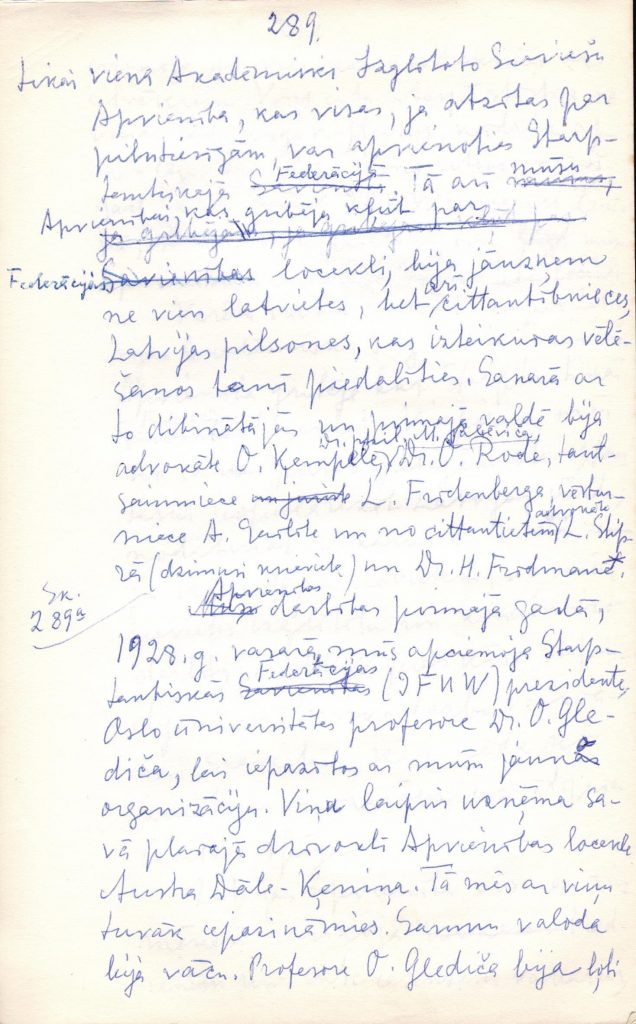 289.
tikai viena Akadēmiski Izglītoto Sieviešu
Apvienība, kas visas, ja atzītas par
pilntiesīgām, var apvienoties Starp-
tautiskajā Savienībā Federācijā. Tā arī mūsu
Apvienībai, kas gribēja kļūt par
Federācijas Savienības locekli, bija jāuzņem
ne vien latvietes, bet arī cittautībnieces,
Latvijas pilsones, kas izteikušas vēlē-
šanos tanī piedalīties. Saskaņā ar
to dibinātājās un pirmajā valdē bija
advokāte O. Ķempele, Dr. phil. M. Dr. O. Rode, taut-
saimniece un juriste L. Frīdenberga, vēstur-
niece A. un no cittautietēm advokāte L. Šlip-
rā (dzimusi) un Dr. H. Frīdmane.
Sk.
289a
Mūsu Apvienības darbības pirmajā gadā,
1928. g. vasarā, mūs apciemoja Starp-
tautiskās Savienības Federācijas (IFUW) prezidente,
Oslo ūniversitātes profesore Dr. O. Gle-
diča, lai iepazītos ar mūsu jauno
organizāciju. Viņu laipni uzņēma sa-
vā plašajā dzīvoklī Apvienības locekle
Austra Dāle-Ķeniņa. Tā mēs ar viņu
tuvāk iepazināmies. Sarunu valoda
bija vācu. Profesore O. Glediča bija ļoti